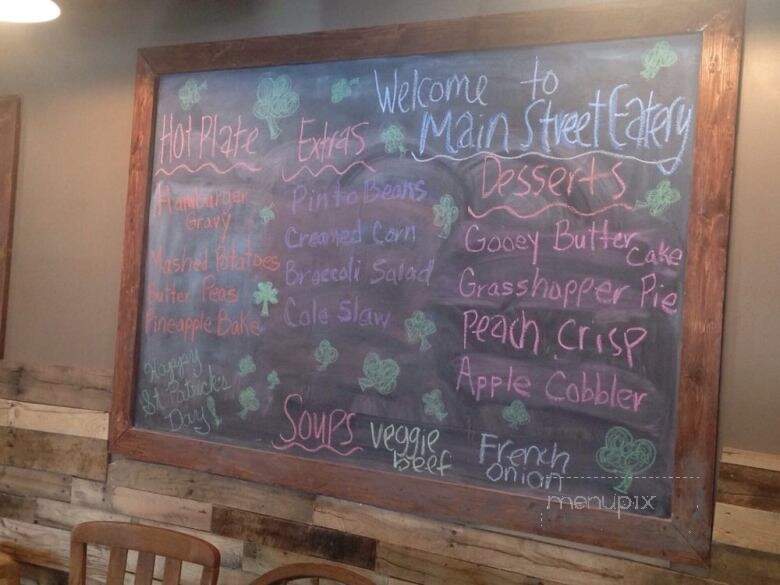 Welcome to
Main Street Eatery
Hot Plate
Hamburger
Gravy
Mashed Potatoes
Butter Peas
Pineapple Bake
Happy
St Patrick's
Day!
Extras
Pinto Beans
Creamed Corn
Broccoli Salad
Cole Slaw
Desserts
Gooey Butter
Cake
Grasshopper Pie
Peach Crisp
Apple Cobbler
Soups
Veggie
beef
French
onion
menupix